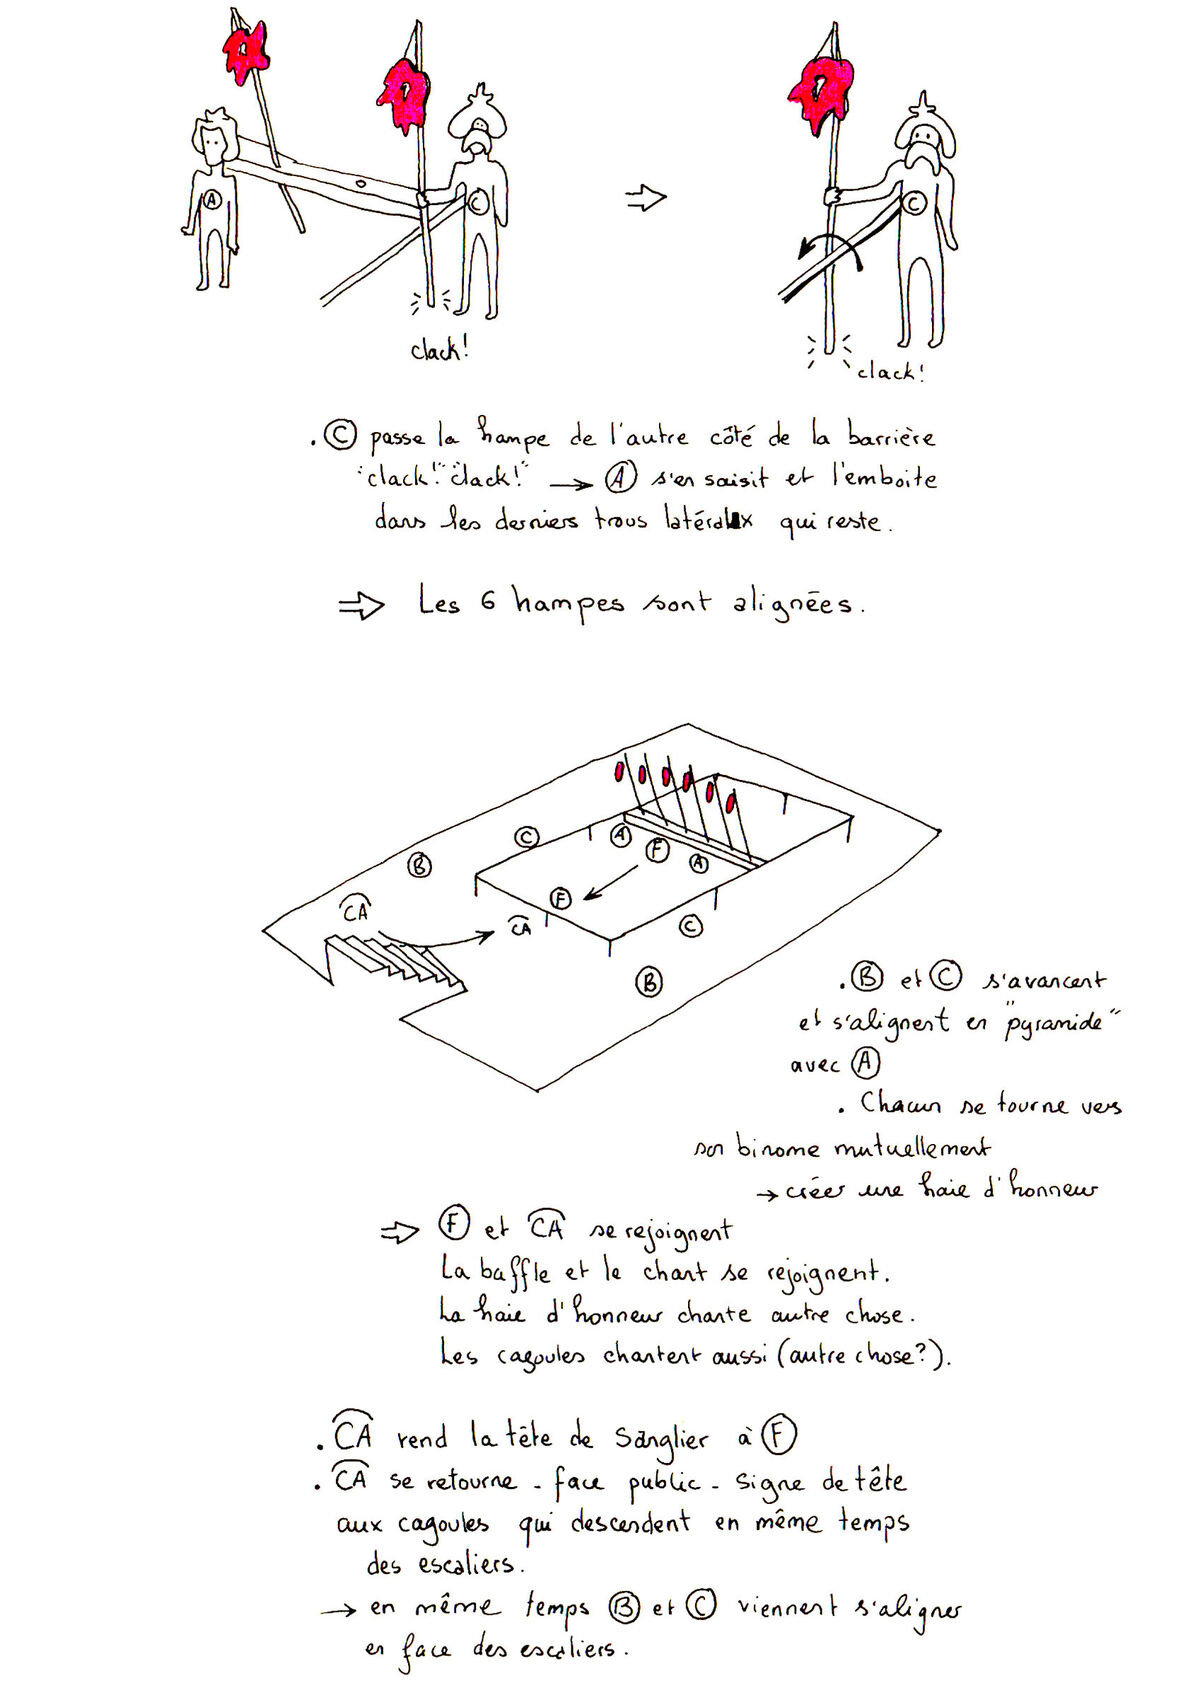 A
C
clack!
C
clack!
. C passe la hampe de l'autre côté de la barrière
"clack!" "clack!" → A s'en saisit et l'emboite
dans les derniers trous latéraux qui reste.
⇒ Les 6 hampes sont alignées.
C
A
F
A
B
F
CA
CA
C
B
. B et C s'avancent
et s'alignent en "pyramide"
avec A
. Chacun se tourne vers
son binome mutuellement
→ créer une haie d'honneur
⇒ F et CA se rejoignent
La baffle et le chant se rejoignent.
La haie d'honneur chante autre chose.
Les cagoules chantent aussi (autre chose?).
. CA rend la tête de Sanglier à F
. CA se retourne - face public - signe de tête
aux cagoules qui descendent en même temps
des escaliers.
→ en même temps B et C viennent s'aligner
en face des escaliers.